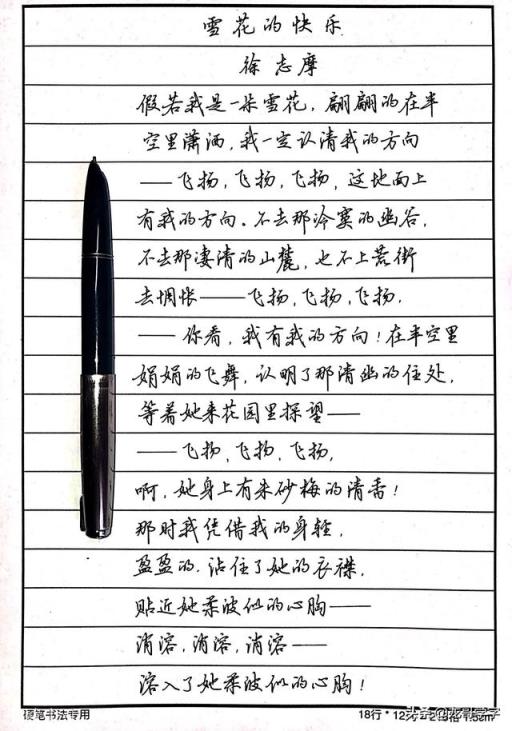 雪花的快乐
徐志摩
假若我是一朵雪花，翩翩的在半
空里潇洒，我一定认清我的方向
——飞扬，飞扬，飞扬，这地面上
有我的方向。不去那冷寞的幽谷，
不去那凄清的山麓，也不上荒街
去惆怅——飞扬，飞扬，飞扬，
——你看，我有我的方向！在半空里
娟娟的飞舞，认明了那清幽的住处，
等着她来花园里探望——
——飞扬，飞扬，飞扬，
啊，她身上有朱砂梅的清香！
那时我凭借我的身轻，
盈盈的，沾住了她的衣襟，
贴近她柔波似的心胸——
消溶，消溶，消溶——
溶入了她柔波似的心胸！
硬笔书法专用
18行·12